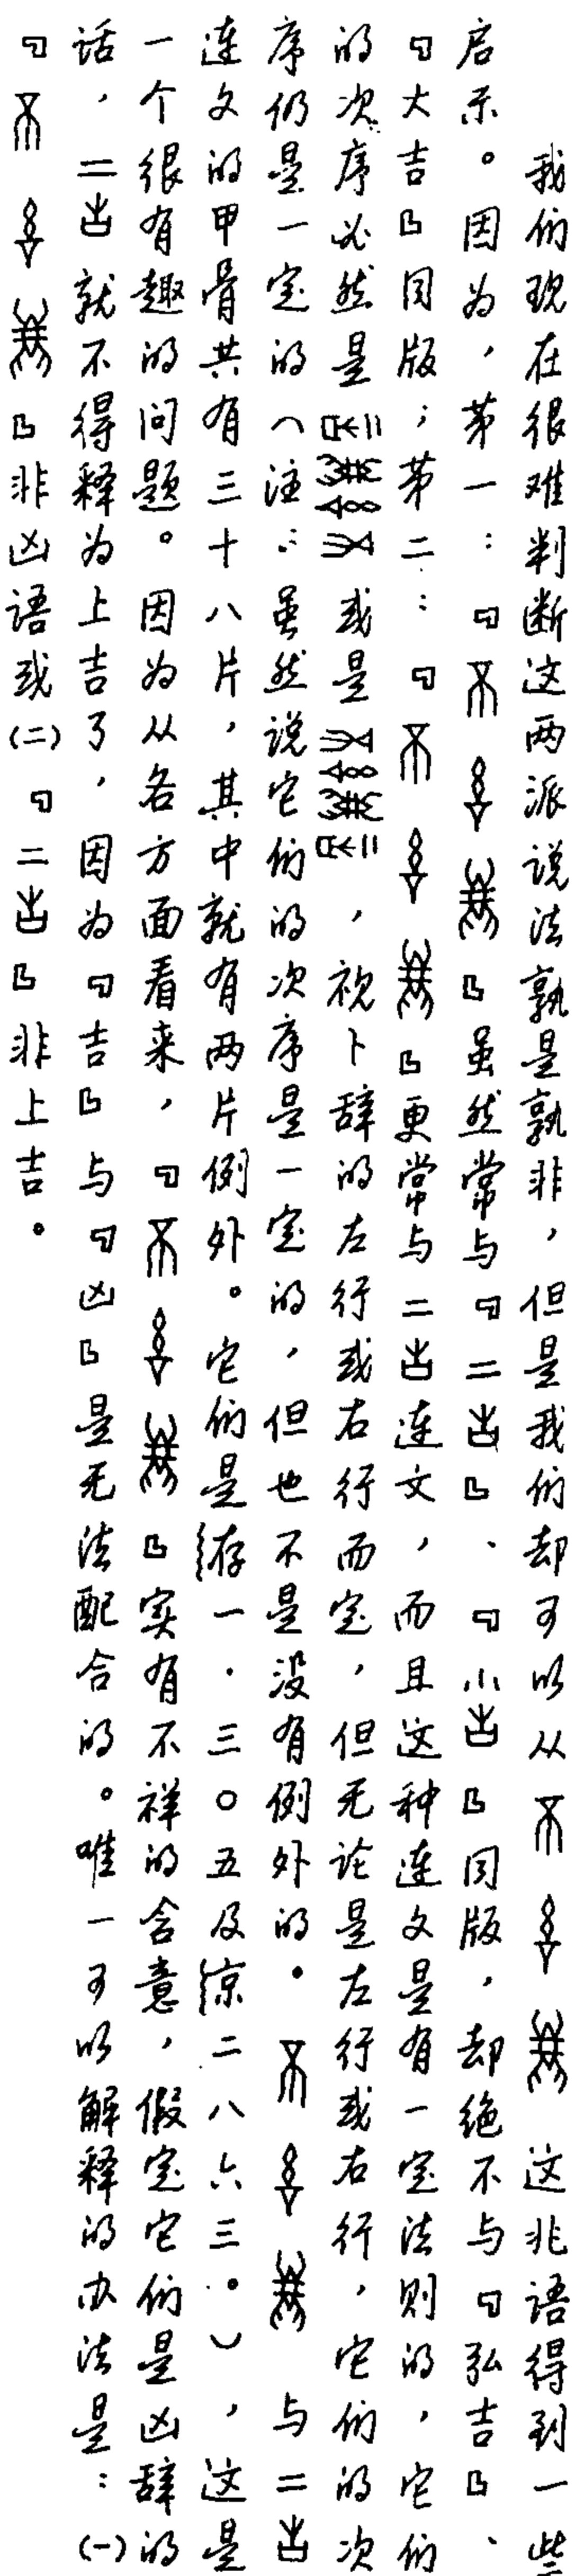 我们现在很难判断这两派说法孰是孰非，但是我们却可以从不这兆语得到一些
启示。因为，第一：「不」虽然常与「二吉」、「小吉」同版，却绝不与「弘吉」、
「大吉」同版；第二：「不」更常与二吉连文，而且这种连文是有一定法则的，它们
的次序必然是或是，视卜辞的左行或右行而定，但无论是左行或右行，它们的次
序仍是一定的（注：虽然说它们的次序是一定的，但也不是没有例外的。不与二吉
连文的甲骨共有三十八片，其中就有两片例外。它们是存一·三〇五及京二八六三。），这是
一个很有趣的问题。因为从各方面看来，「不」实有不祥的含意，假定它们是凶辞的
话，二吉就不得释为上吉了，因为「吉」与「凶」是无法配合的。唯一可以解释的办法是：(一)
「不」非凶语或(二)「二吉」非上吉。